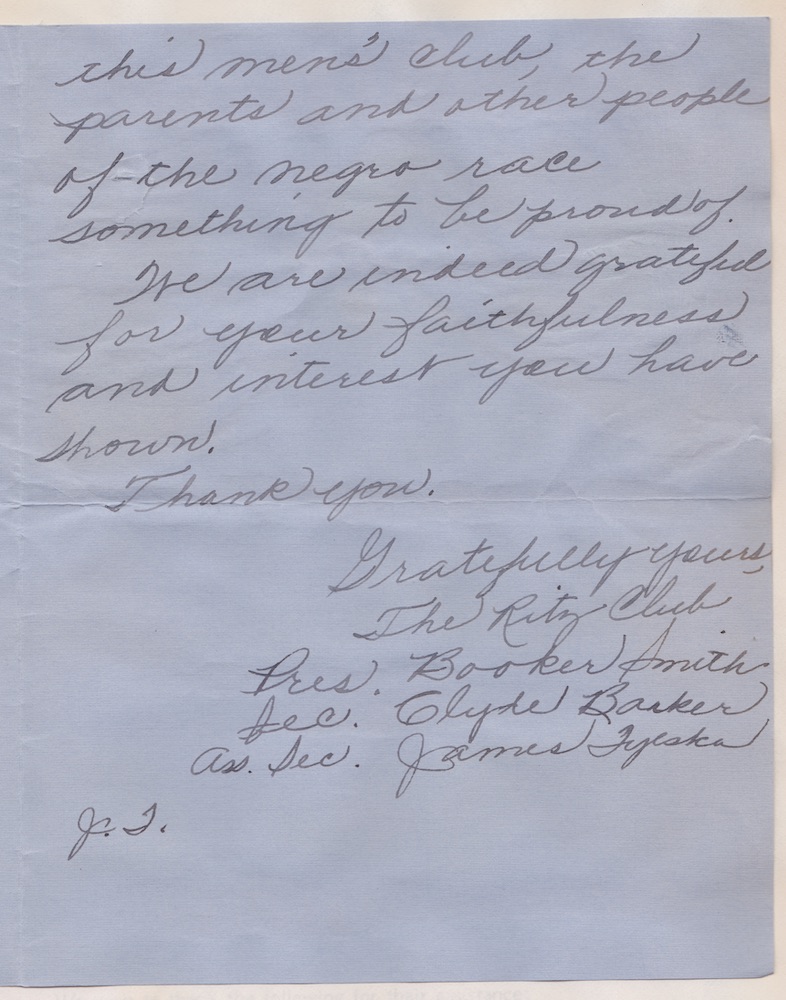 this men's club, the
parents and other people
of the negro race
something to be proud of.
We are indeed grateful
for your faithfulness
and interest you have
shown.
Thank you.
Gratefully yours,
The Ritz Club
Pres. Booker Smith
Sec. Clyde Barker
Ass. Sec. James Tyeska
J.T.